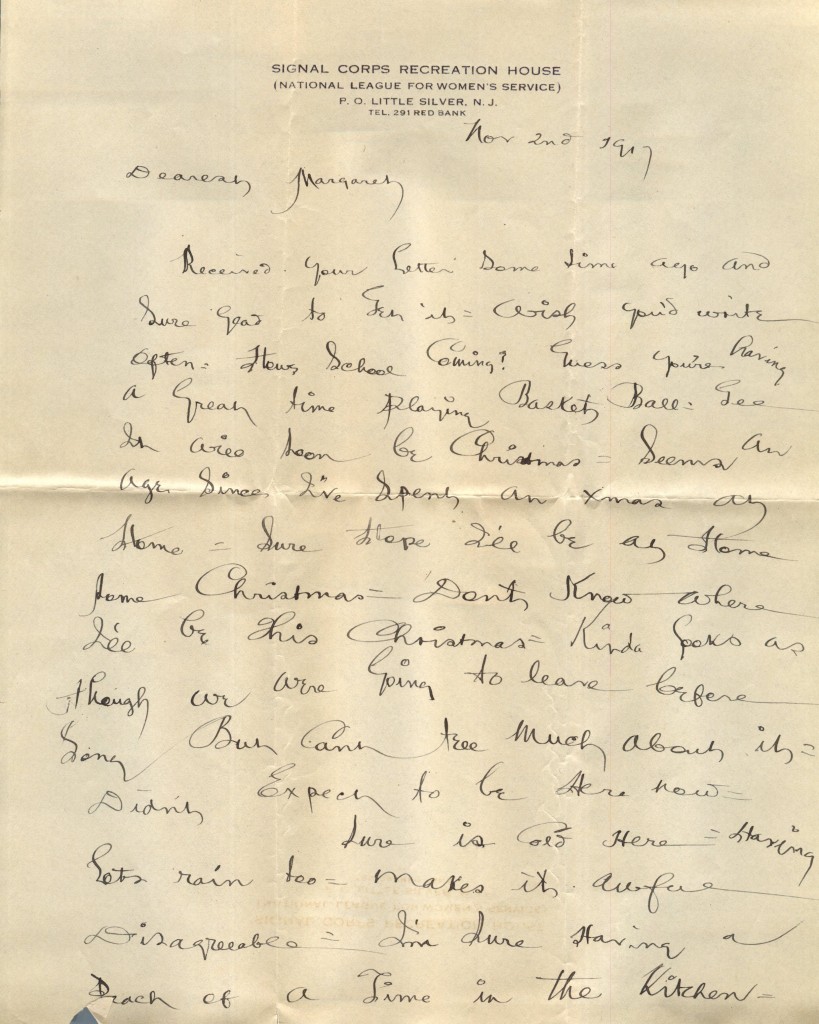 SIGNAL CORPS RECREATION HOUSE
(NATIONAL LEAGUE FOR WOMEN'S SERVICE)
P. O. LITTLE SILVER, N. J.
TEL. 291 RED BANK
Nov 2nd 1917
Dearest Margaret
Received your letter some time ago and
sure glad to get it = Wish you'd write
often = Hows School Coming? Guess you're having
a great time playing Basket Ball = Gee
It will soon be Christmas = Seems an
age since I've spent an xmas at
Home = Sure Hope I'll be at Home
some Christmas = Don't Know where
I'll be this Christmas = Kinda looks as
though we were going to leave before
long But Can't tell much about it =
Didn't Expect to be Here now =
Sure is Cold Here = Having
lots rain too = makes it awful
Disagreeable = I'm sure Having a
of a Time in the Kitchen =